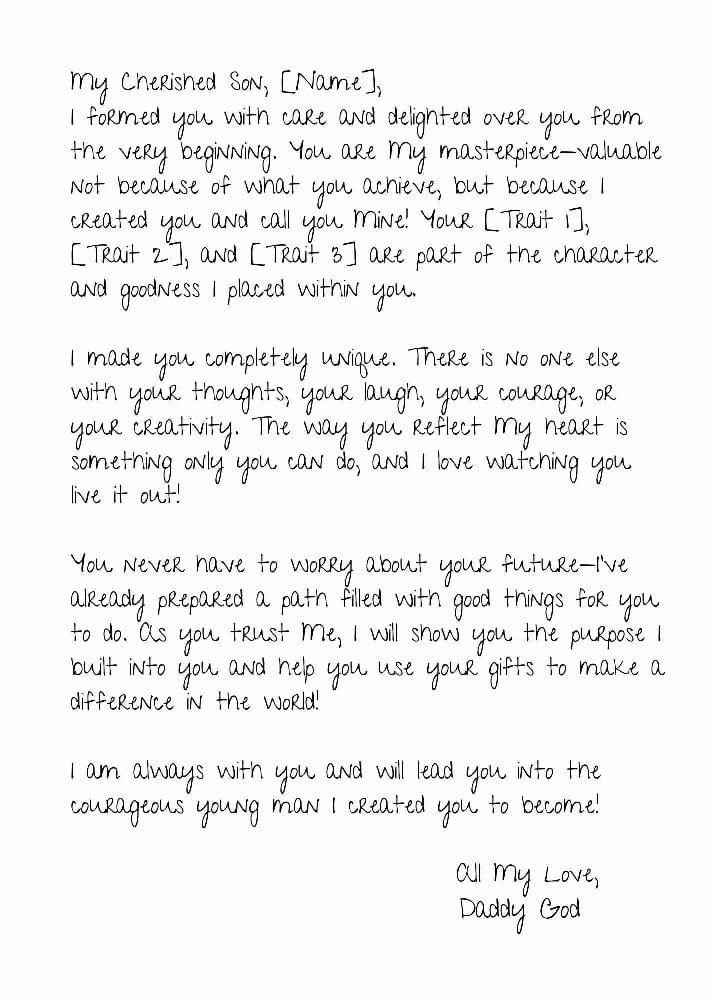 My Cherished Son, [Name],
I formed you with care and delighted over you from
the very beginning. You are My masterpiece—valuable
not because of what you achieve, but because I
created you and call you Mine! Your [Trait 1],
[Trait 2], and [Trait 3] are part of the character
and goodness I placed within you.

I made you completely unique. There is no one else
with your thoughts, your laugh, your courage, or
your creativity. The way you reflect My heart is
something only you can do, and I love watching you
live it out!

You never have to worry about your future—I've
already prepared a path filled with good things for you
to do. As you trust Me, I will show you the purpose I
built into you and help you use your gifts to make a
difference in the world!

I am always with you and will lead you into the
courageous young man I created you to become!

All My Love,
Daddy God